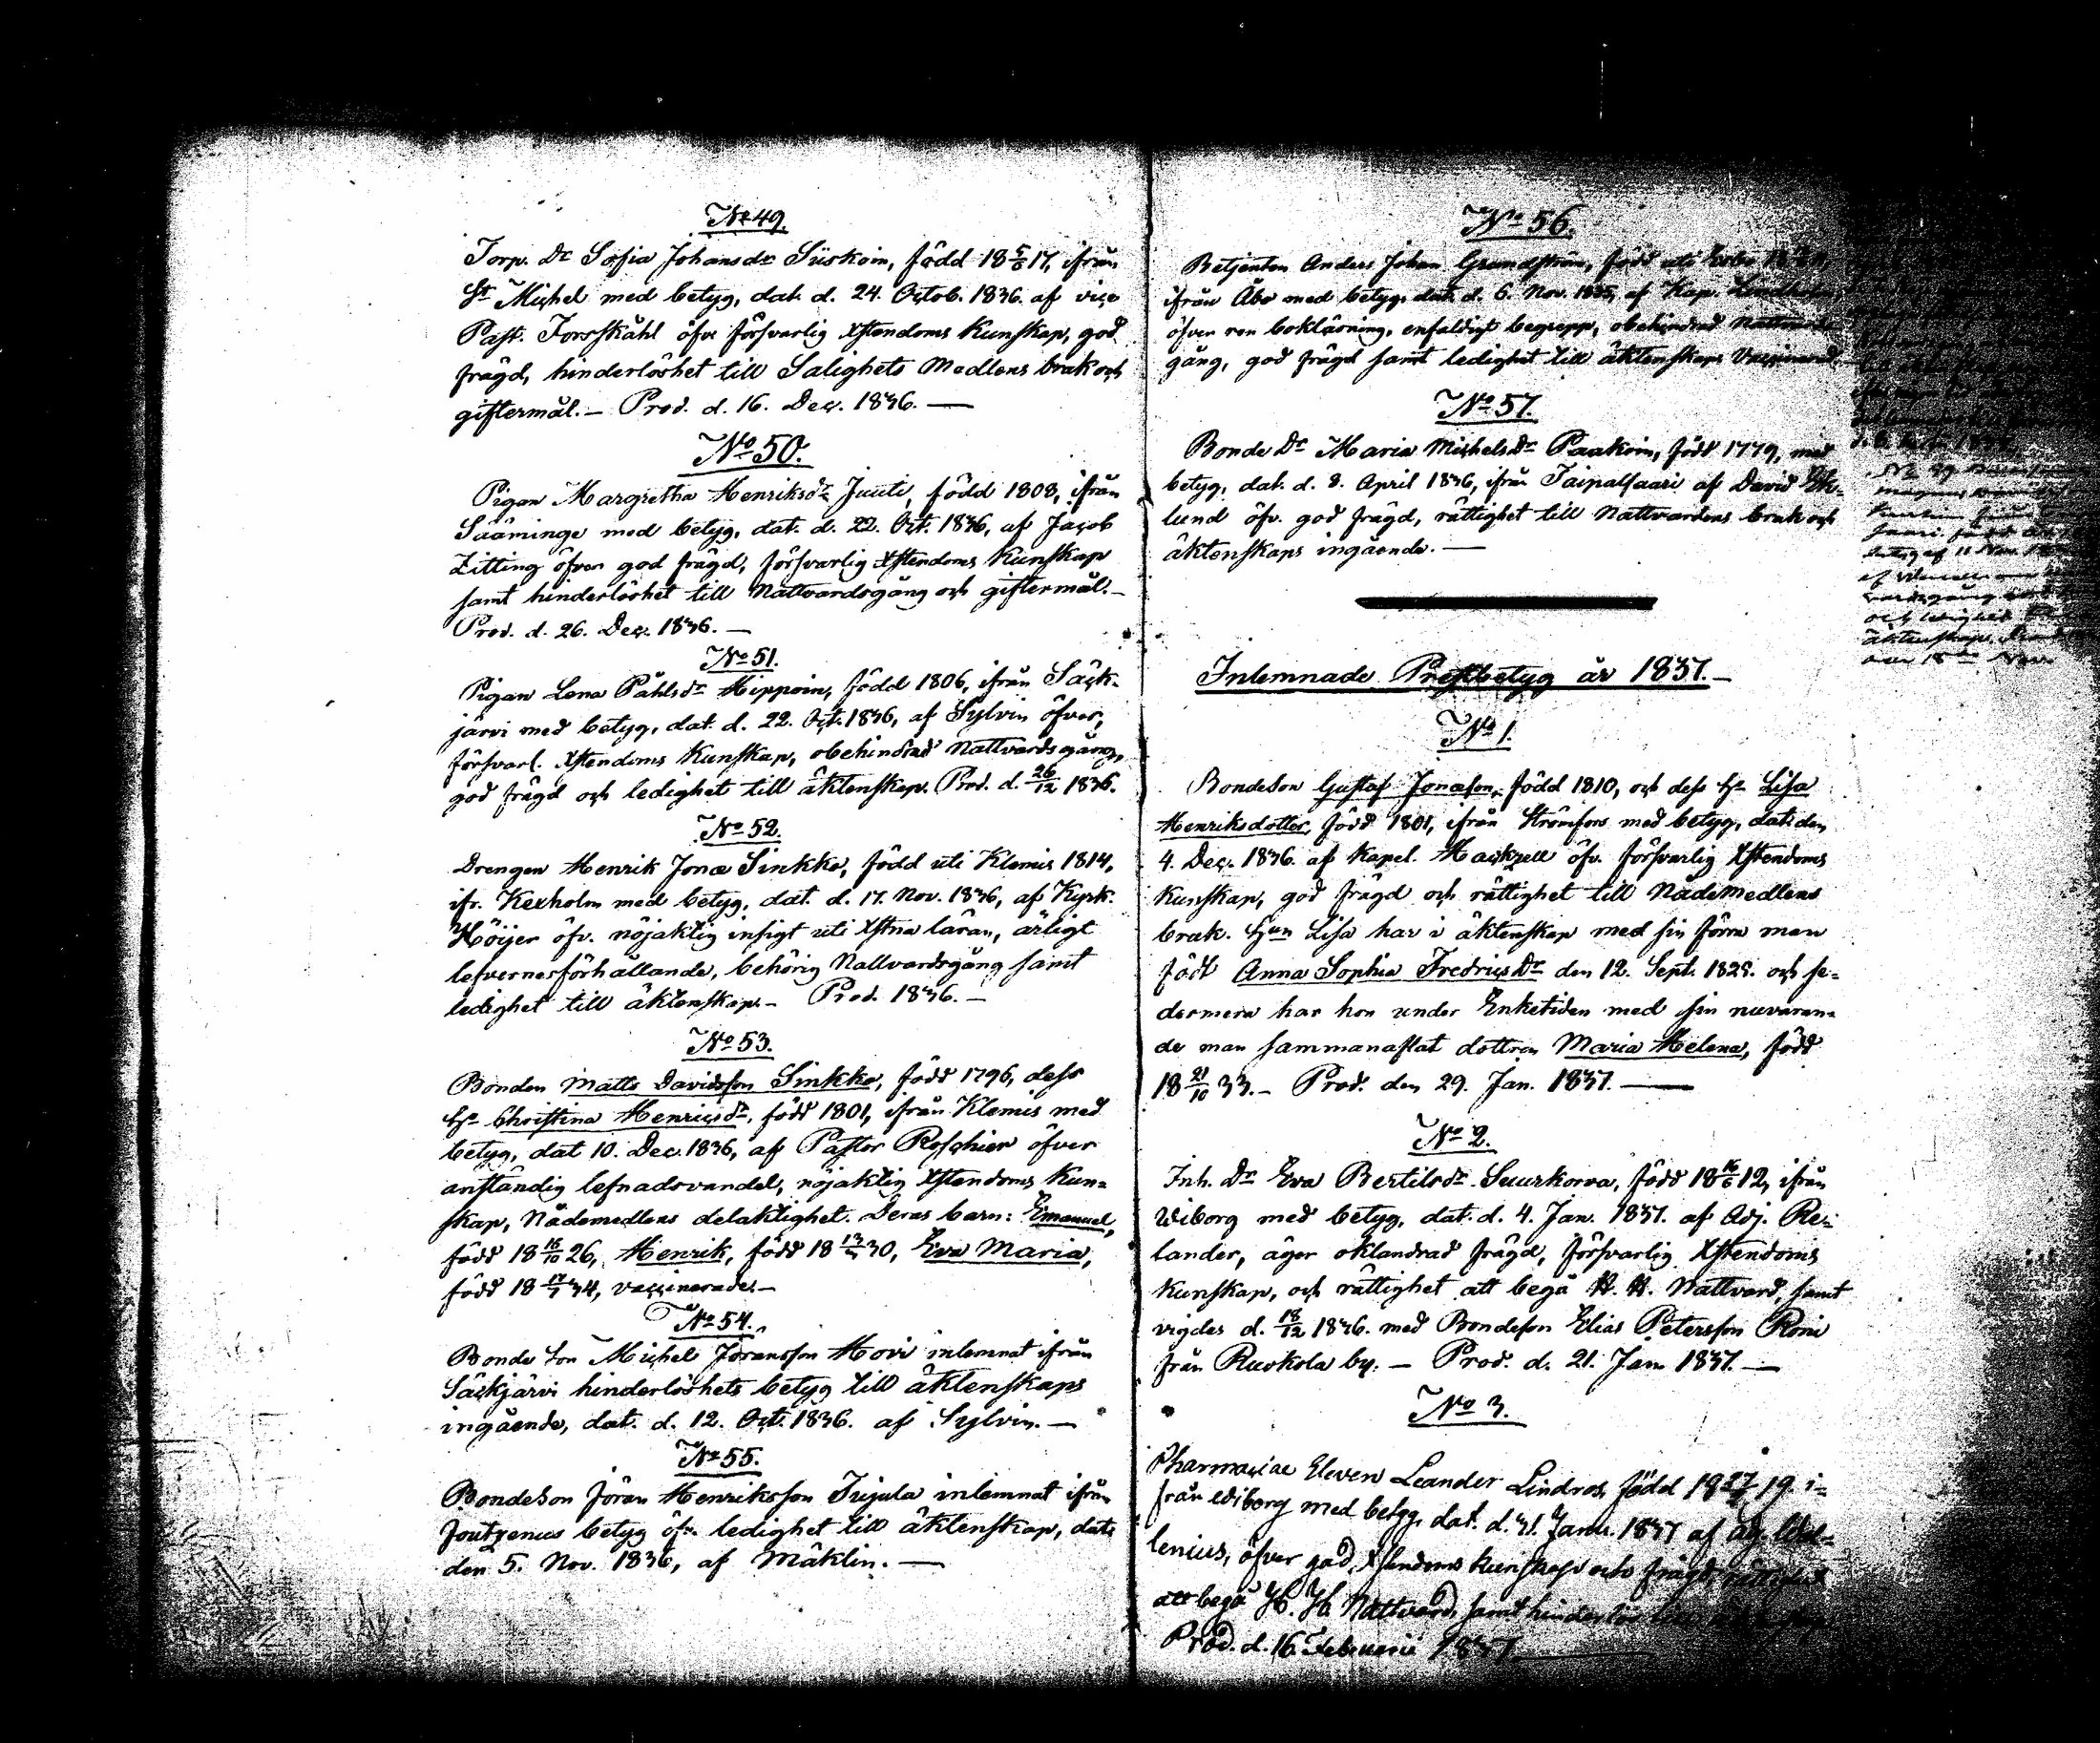 No 49.
Torp. Dr Sofia Johansdr Siiskoin, född 18 5/6 17, ifrån
St Michel med betyg, dat. d. 24. Octob. 1836. af vice
Past. Forsskåhl öfver försvarlig Xstendoms Kunskap, god
frägd, hinderlöshet till Salighets Medlens bruk och
giftermål. — Prod. d. 16. Dec. 1836. —
No 50.
Pigan Margretha Henriksdr Juuti, född 1808, ifrån
Sääminge med betyg, dat. d. 22. Oct. 1836, af Jacob
Zitting öfver god frägd, försvarlig Xstendoms Kunskap
samt hinderlöshet till Nattvardsgång och giftermål. —
Prod. d. 26. Dec. 1836. —
No 51.
Pigan Lena Påhlsdr Hippoin, född 1806, ifrån Säck-
järvi med betyg, dat. d. 22. Oct. 1836, af Sylvin öfver,
försvarl. Xstendoms Kunskap, obehindrad Nattvardsgång,
god frägd och ledighet till äktenskap. Prod. d. 26/12 1836.
No 52.
Drengen Henrik Jonæ Sinkko, född uti Klemis 1814,
ifr. Kexholm med betyg, dat. d. 17. Nov. 1836, af Kyrk.
Höijer öfv. nöjaktig insigt uti Xstna läran, ärligt
lefvernesförhållande, behörig Nattvardsgång samt
ledighet till äktenskap. — Prod. 1836. —
No 53.
Bonden Matts Davidsson Sinkko, född 1796, dess
Hu Christina Henricsdr, född 1801, ifrån Klemis med
betyg, dat 10. Dec. 1836, af Pastor Roschier öfver
anständig lefnadsvandel, nöjaktig Xstendoms Kun-
skap, Nådemedlens delaktighet. Deras barn: Emanuel,
född 18 16/10 26, Henrik, född 18 30, Eva Maria,
född 18 17/7 34, vaccinerade. —
No 54.
Bonde Son Michel Jöransson Hovi inlemnat ifrån
Säckjärvi hinderlöshets betyg till äktenskaps
ingående, dat. d. 12. Oct. 1836. af Sylvin. —
No 55.
BondeSon Jöran Henriksson Irjula inlemnat ifrån
Joutzenus betyg öfr. ledighet till äktenskap, dat.
den 5. Nov. 1836, af Mäklin. —
No 56.
Betjenten Anders Johan Grundström, född uti
ifrån Åbo med betyg, dat. d. 6. Nov. 1835, af Kap. Lindholm,
öfver ren bokläsning, enfaldigt begrepp, obehindrad Nattvards
gång, god frägd samt ledighet till äktenskap. Vaccinerad.
No 57.
Bonde Dr Maria Michelsdr Paakoin, född 1779, med
betyg, dat. d. 8. April 1836, ifrån Taipalsaari af David Ek-
lund öfv. god frägd, rättighet till Nattvardens bruk och
äktenskaps ingående. —
Inlemnade Prestbetyg år 1837. —
No 1.
BondeSon Gustaf Jonasson, född 1810, och dess Hu Lisa
Henriksdotter, född 1801, ifrån Strömfors med betyg, dat. den
4. Dec. 1836. af Kapel. Hackzell öfv. försvarlig Xstendoms
Kunskap, god frägd och rättighet till Nådemedlens
bruk. Hun Lisa har i äktenskap med sin förra man
födt Anna Sophia Fredricsdr den 12. Sept. 1828. och se-
dermera har hon under Enketiden med sin nuvaran-
de man sammanaflat dottren Maria Helena, född
18 21/10 33. — Prod. den 29. Jan. 1837. —
No 2.
Inh. Dr Eva Bertilsdr Suurkorva, född 18 16/6 12, ifrån
Wiborg med betyg, dat. d. 4. Jan. 1837. af Adj. Re-
lander, äger oklandrad frägd, försvarlig Xstendoms
Kunskap, och rättighet att begå H. H. Nattvard, samt
vigdes d. 18/12 1836. med Bondeson Elias Petersson Roni
från Ruokola by. — Prod. d. 21. Jan 1837. —
No 3.
Pharmaciae Eleven Leander Lindros, född 18 27/7 19. i-
från Wiborg med betyg, dat. d. 31. Janu. 1837 af adj. Wal-
lenius, öfver god Xstendoms kunskap och frägd, rättighet
att begå H. H. Nattvard, samt
Prod. d. 16 Februarii 1837.